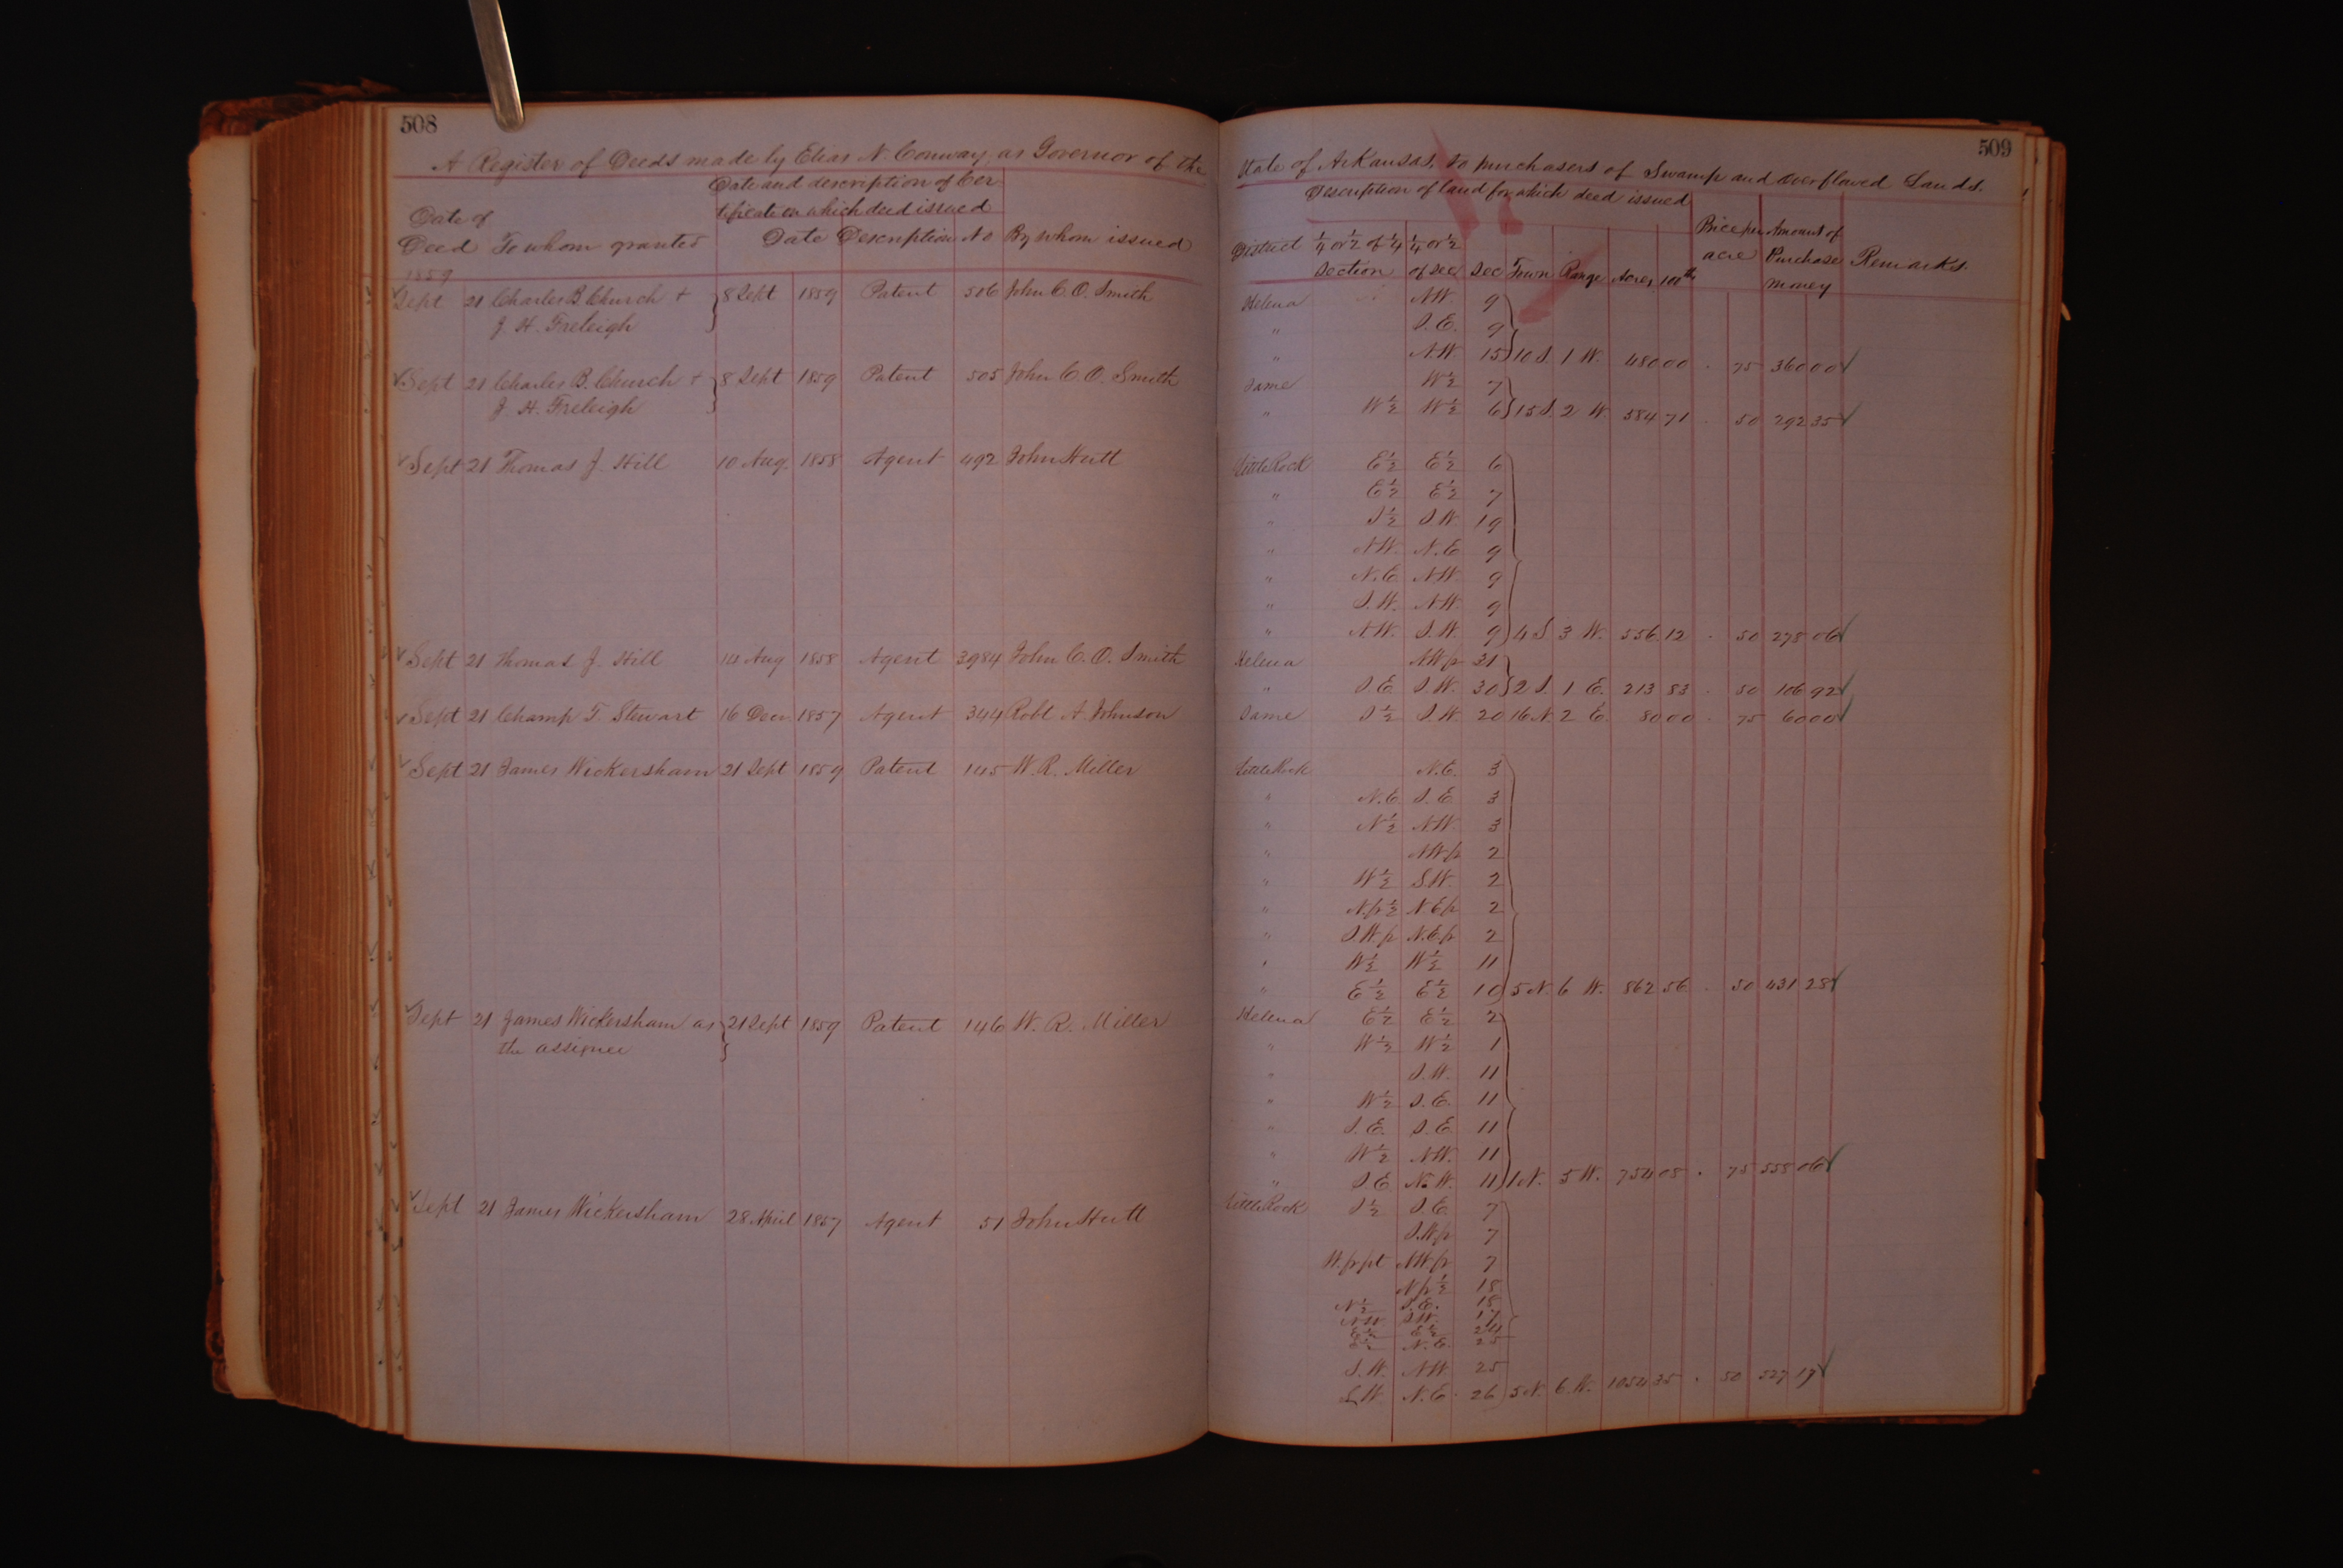 508
A Register of Deeds made by Elias N. Conway, as Governor of the
Date and description of Cer-
tificate on which deed issued
Date of
Deed To whom granted Date Description No By whom issued
1859
Sept 21 Charles B Church + 8 Sept 1859 Patent 506 John C. O. Smith
J. H. Freleigh
Sept 21 Charles B. Church + 8 Sept 1859 Patent 505 John C. O. Smith
J. H. Freleigh
Sept 21 Thomas J. Hill 10 Aug. 1858 Agent 492 John Hutt
Sept 21 Thomas J. Hill 14 Aug 1858 Agent 3984 John C. O. Smith
Sept 21 Champ T. Stewart 16 Decr 1857 Agent 344 Robt A. Johnson
Sept 21 James Wickersham 21 Sept 1859 Patent 145 W. R. Miller
Sept 21 James Wickersham as 21 Sept 1859 Patent 146 W. R. Miller
the assignee
Sept 21 James Wickersham 28 April 1857 Agent 51 John Hutt
509
State of Arkansas, to purchasers of Swamp and Overflowed Lands.
Description of land for which deed issued
District 1/4 or 1/2 of 1/4 1/4 or 1/2 Price per Amount of
Section of Sec Sec Town Range Acres 100ths acre Purchase Remarks.
money
Helena NW. 9
" S.E. 9
" N.W. 15 10 S. 1 W. 480 00 . 75 360 00
Same W 1/2 7
" W 1/2 W 1/2 6 15 S. 2 W. 584 71 . 50 292 35
Little Rock E 1/2 E 1/2 6
" E 1/2 E 1/2 7
" S 1/2 S.W. 19
" NW. N.E 9
" N.E. NW. 9
" S.W. NW. 9
" NW. S.W. 9 4 S 3 W. 556 12 . 50 278 06
Helena NWp 31
" S.E. S.W. 30 2 S. 1 E. 213 83 . 50 106 92
Same S 1/2 S.W. 20 16 N. 2 E. 80 00 . 75 60 00
Little Rock N.E. 3
" N.E. S.E 3
" N 1/2 N.W. 3
" NWp 2
" W 1/2 S.W. 2
" N.p 1/2 N.Ep 2
" S.W.p N.E.p 2
" W 1/2 W 1/2 11
" E 1/2 E 1/2 10 5 N. 6 W. 862 56 . 50 431 28
Helena E 1/2 E 1/2 2
" W 1/2 W 1/2 1
" S.W. 11
" W 1/2 S.E. 11
" S.E. S.E 11
" W 1/2 NW. 11
" S.E N.W. 11 1 N. 5 W. 754 08 . 75 558 06
Little Rock S 1/2 S.E. 7
S.Wp 7
W.prpt NW.p 7
Np 1/2 18
N 1/2 S.E. 18
NW. SW. 17
E 1/2 E 1/2 24
N.E. 25
S.W. NW. 25
S.W N.E. 26 5 N. 6 W. 1054 35 . 50 527 17